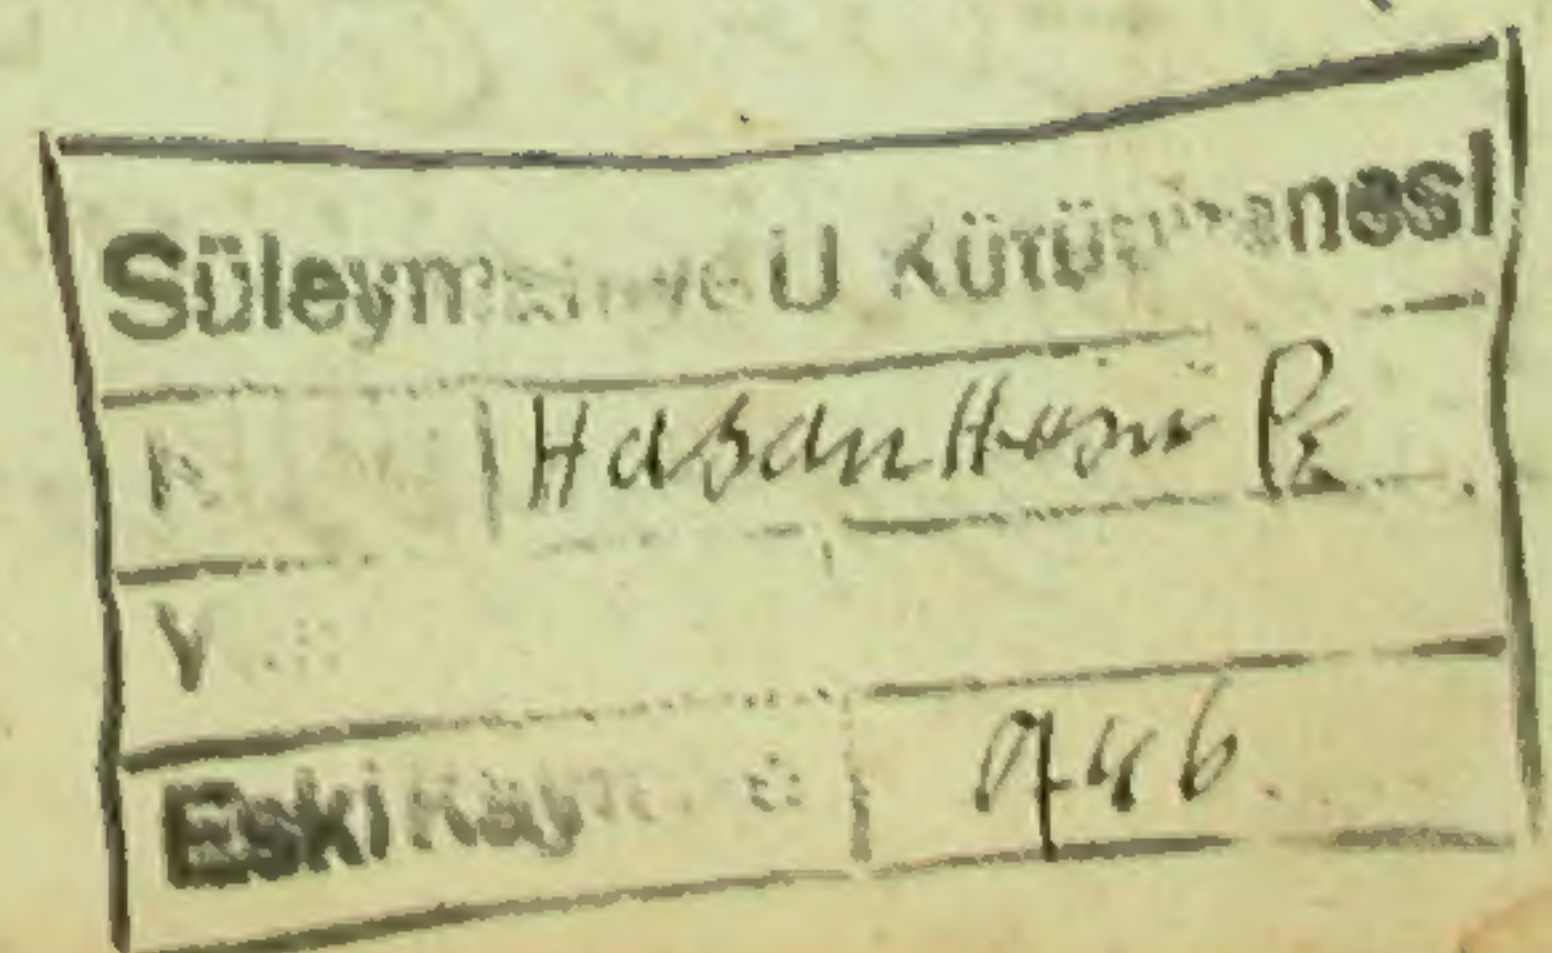 Süleymaniye U Kütüphanesi
K Hasan Hüsnü Pş
Y
Eski Kayıt No 746